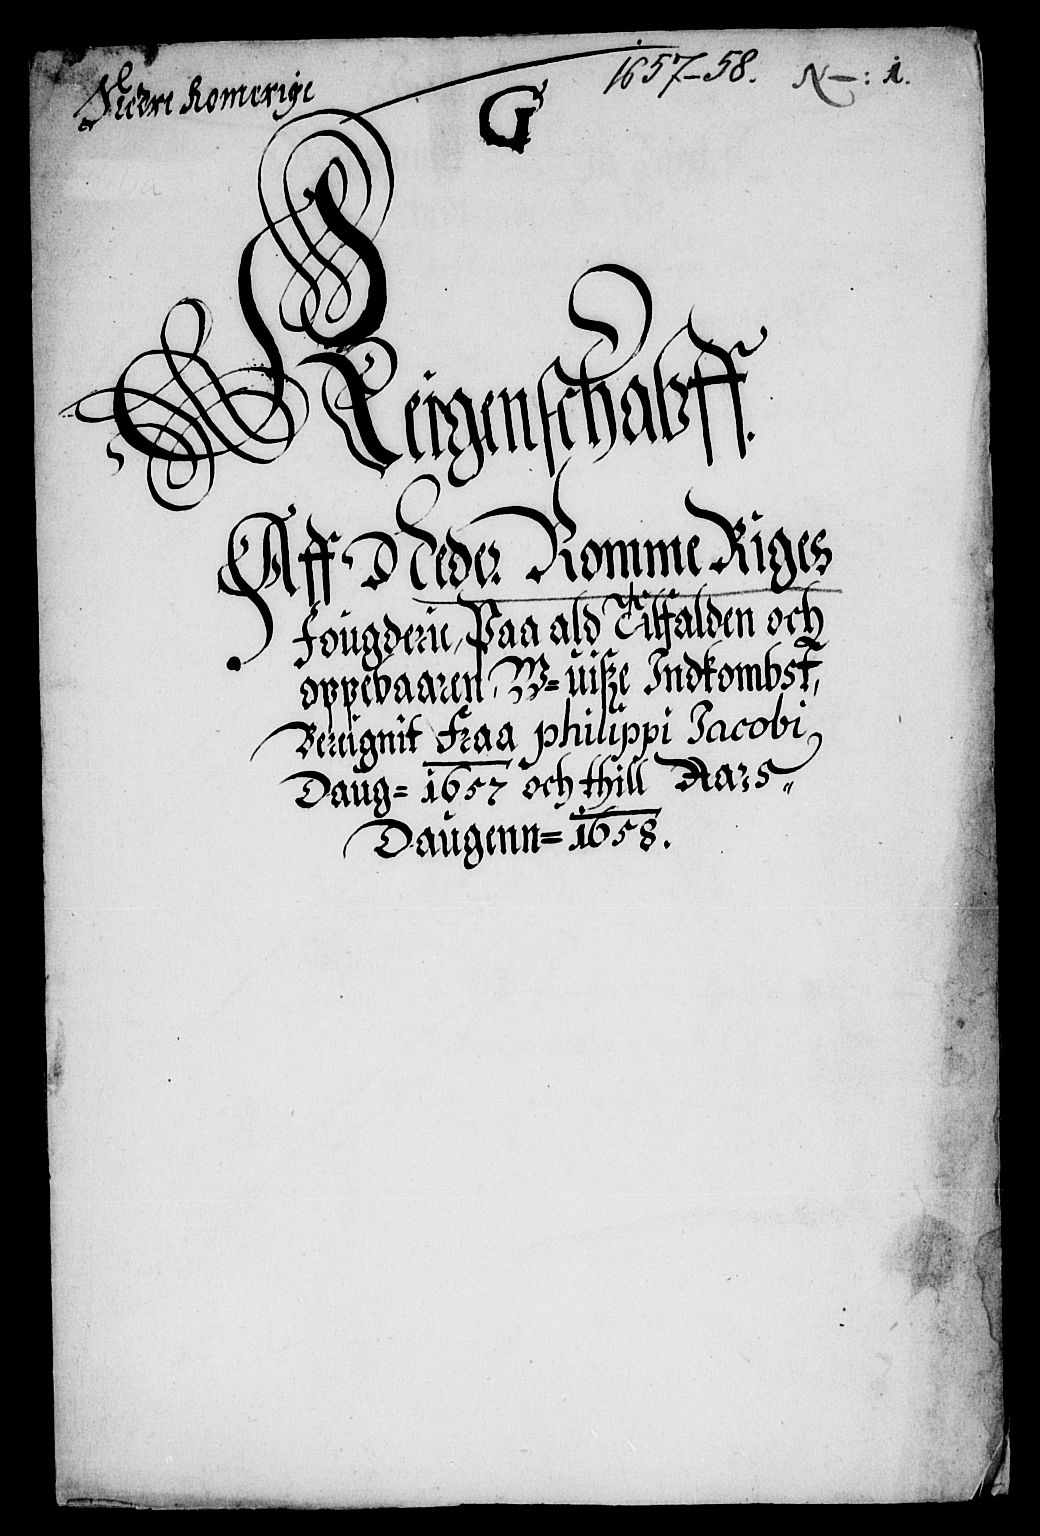 Nedre Romerige
1657-58. No: 1.
G
Reigenschabff.
Aff Neder Romme Riges
Fougderie, Paa ald Tilfalden och
oppebaaren, W=uisze Indkombst,
Bereignit Fraa philippi Jacobi
Daug= 1657 och thill Aars
Daugenn= 1658.